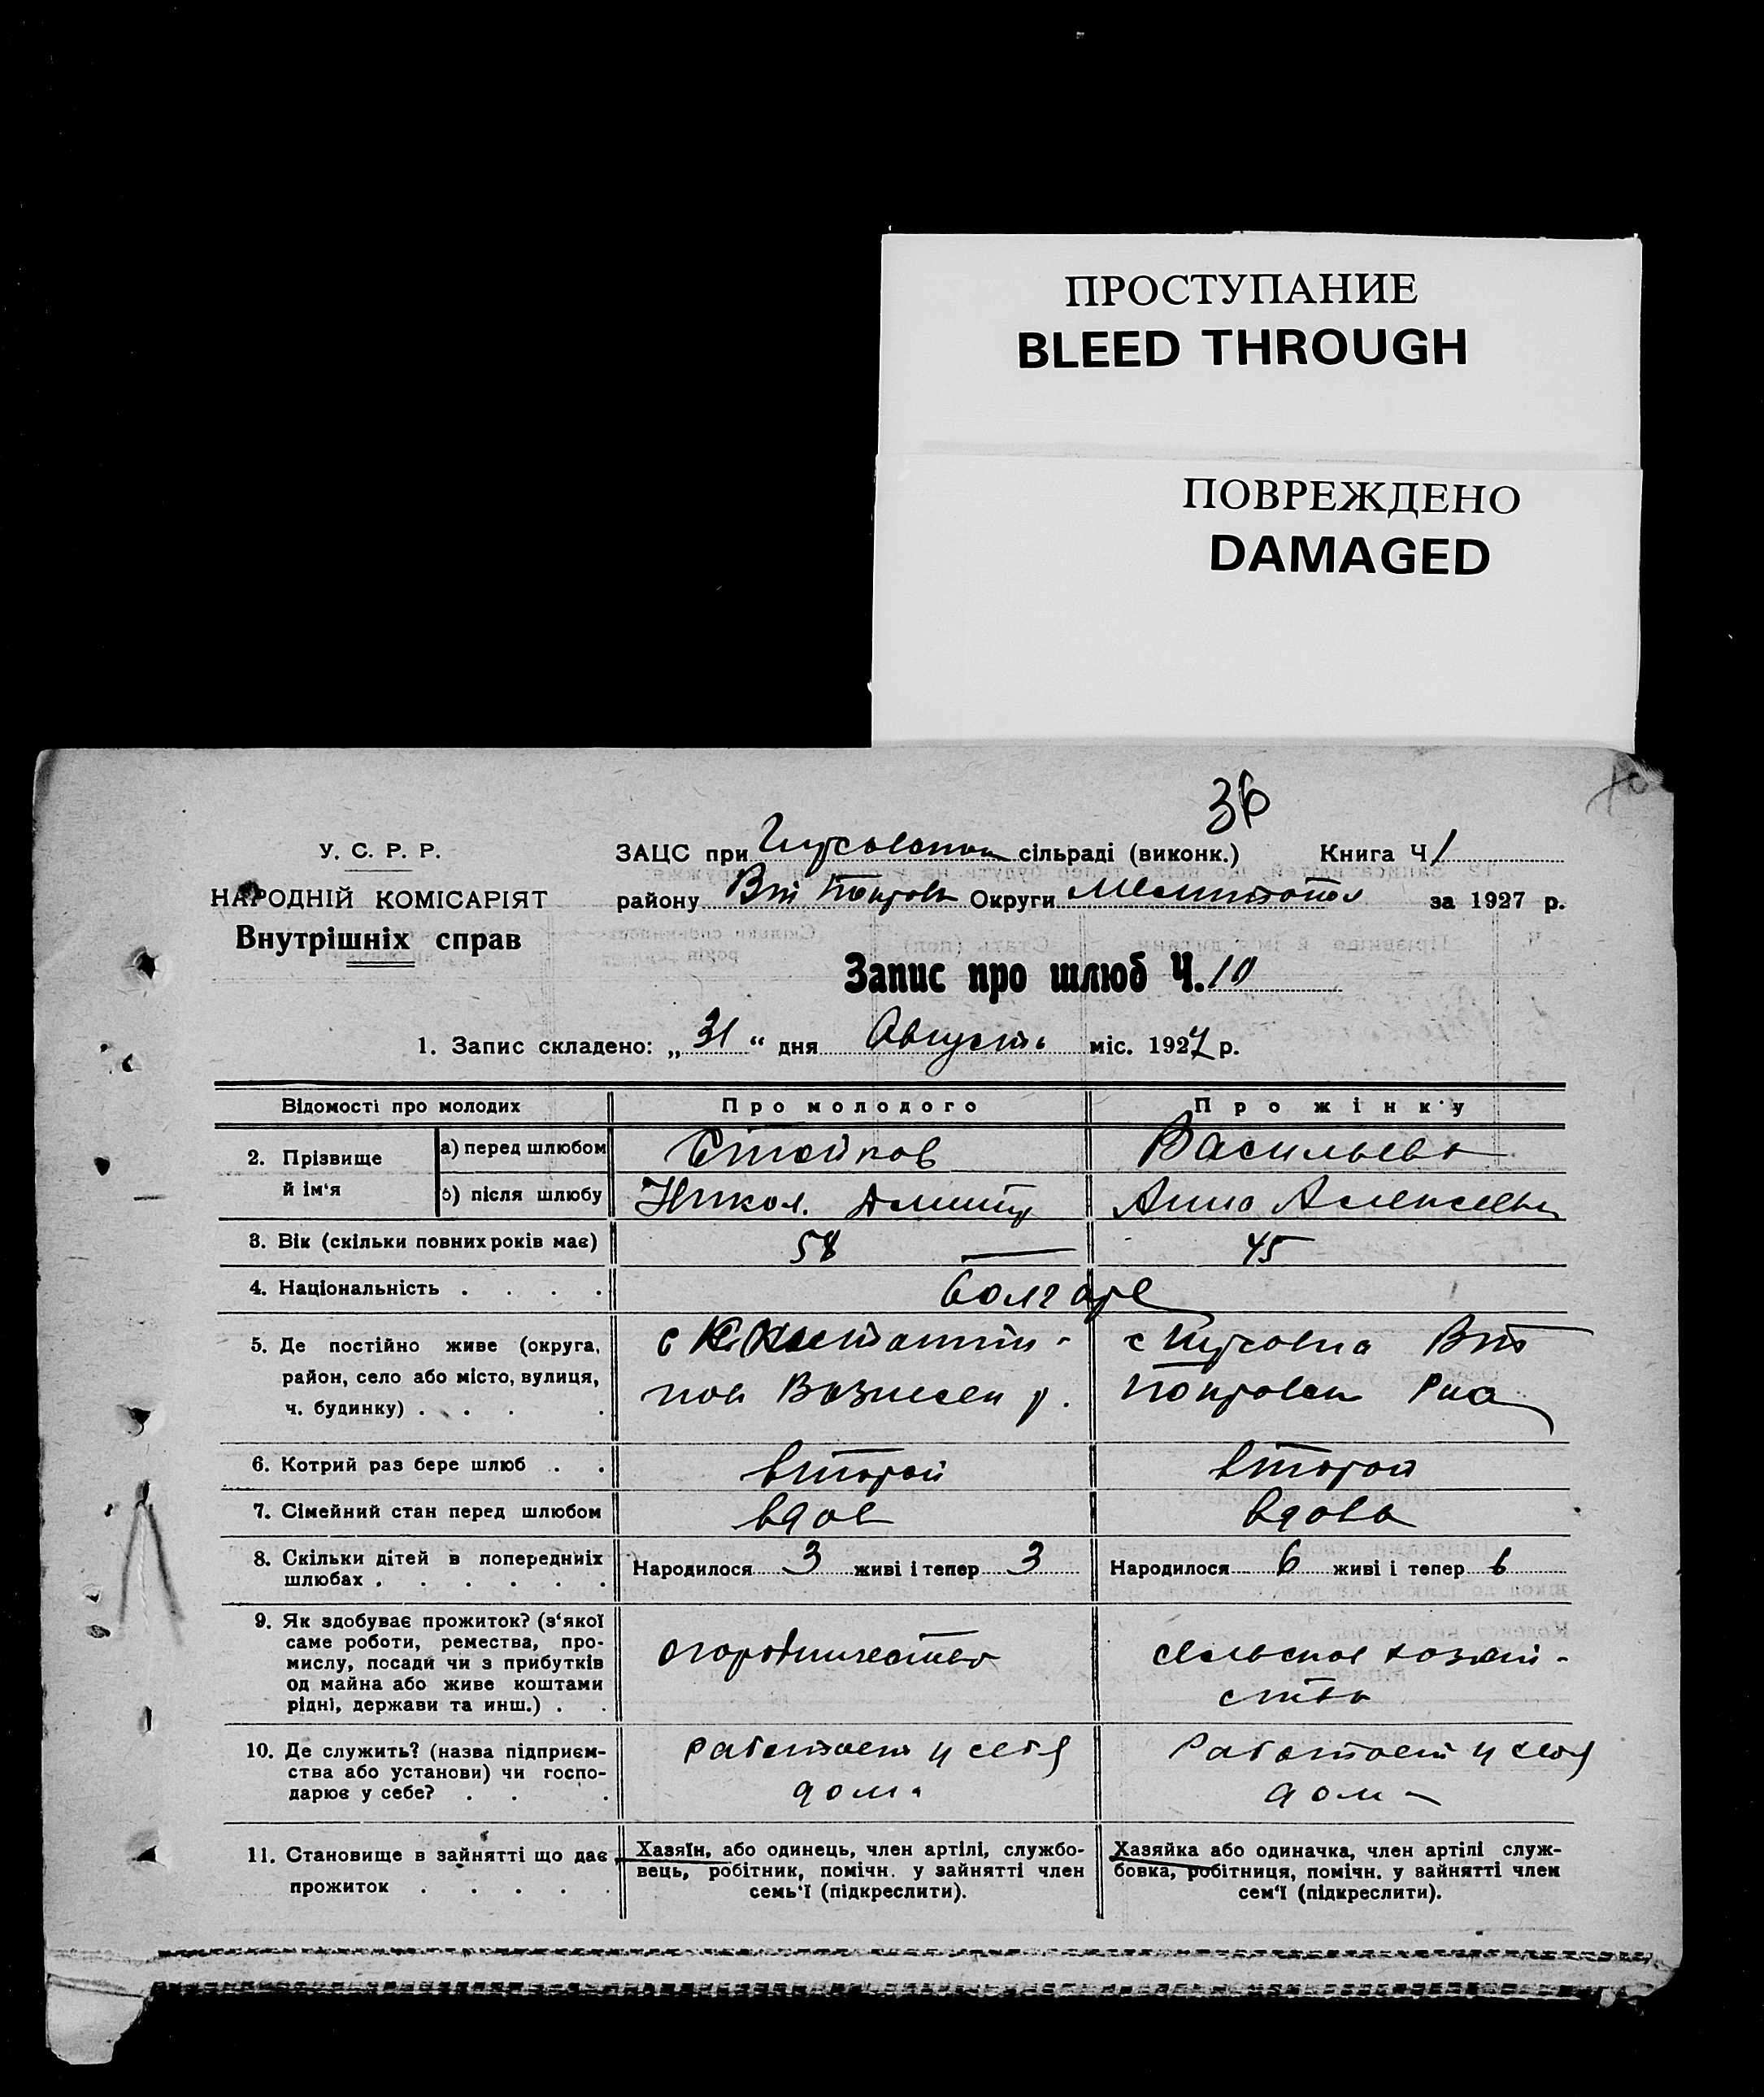 ПРОСТУПАНИЕ
BLEED THROUGH
ПОВРЕЖДЕНО
DAMAGED
36
У. С. Р. Р.
НАРОДНІЙ КОМІСАРІЯТ
Внутрішніх справ
ЗАЦС при сільраді (виконк.) Книга Ч 1
району Вт Покров Округи Мелитопол за 1927 р.
Запис про шлюб Ч. 10
1. Запис складено: „ 31 “ дня Августа міс. 1927 р.
Відомості про молодих Про молодого Про жінку
2. Прізвище й ім'я
а) перед шлюбом Стойков Васильева
б) після шлюбу Никол. Дмитр Анна Алексеевн
3. Вік (скільки повних років має) 58 45
4. Національність . . . . болгаре
5. Де постійно живе (округа,
район, село або місто, вулиця,
ч. будинку) . . . .
с Константин-
пол Вознесен р.
с Вт
Покровск Рна
6. Котрий раз бере шлюб . . второй второй
7. Сімейний стан перед шлюбом вдов вдова
8. Скільки дітей в попередниіх
шлюбах . . . . . .
Народилося 3 живі і тепер 3 Народилося 6 живі і тепер 6
9. Як здобуває прожиток? (з'якої
саме роботи, ремества, про-
мислу, посади чи з прибутків
од майна або живе коштами
рідні, держави та инш.) . .
огородничество
сельское хозяй-
ство
10. Де служить? (назва підприєм-
ства або установи) чи госпо-
дарює у себе? . . .
работает у себя
дома
Работает у себя
дома
11. Становище в зайнятті що дає
прожиток . . . . .
Хазяїн, або одинець, член артілі, службо-
вець, робітник, помічн. у зайнятті член
семь'ї (підкреслити).
Хазяйка або одиначка, член артілі служ-
бовка, робітниця, помічн. у зайнятті член
сем'ї (підкреслити).